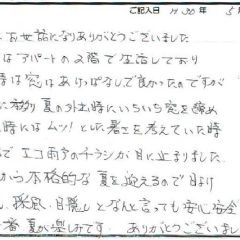 ご記入日 H30年 5
お世話になりありがとうございました
はアパートの2階で生活しており
時は窓はあけっぱなしで良かったのですが
に来り 夏の外出時にいちいち窓を締め
時にはムッ！とした暑さを考えていた時
で エコ雨戸のチラシが目に止まりました。
から本格的な 夏を迎えるので 日よけ
、採風、目隠し となんと言っても安心安全
番 夏が楽しみです。 ありがとうございまし